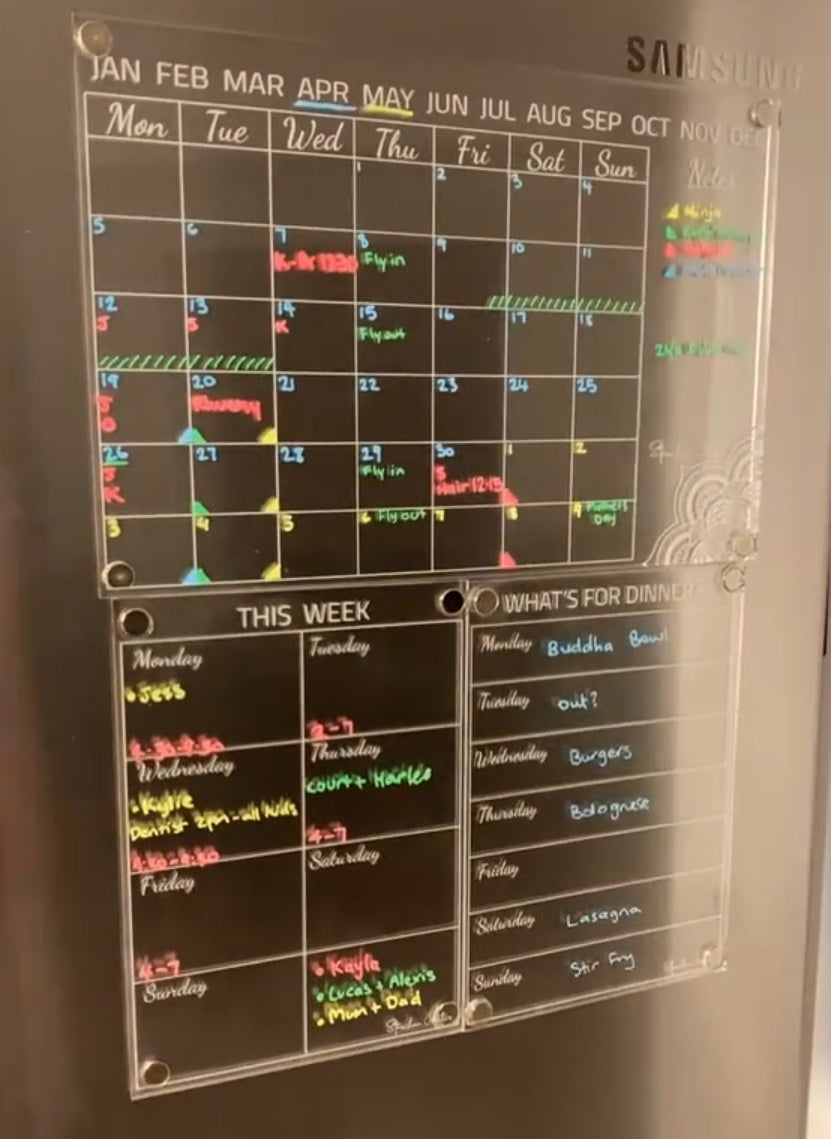 SAMSUNG
JAN FEB MAR APR MAY JUN JUL AUG SEP OCT NOV DE
Mon Tue Wed Thu Fri Sat Sun
Notes
1 2 3 4
Ninja
5 6 7 8 9 10 11
Fly in
12 13 14 15 16 17 18
J S K Fly out
19 20 21 22 23 24 25
J
26 27 28 29 30 1 2
J Fly in S
K Hair 12:15
3 4 5 6 Fly out 7 8 9 Mothers
Day
THIS WEEK
Monday
• Jess
Tuesday
Wednesday
• Kylie
Dentist 2pm - all kids
Thursday
Court + Harley
4-7
Friday
4-7
Saturday
Sunday
• Kayla
• Lucas + Alexis
• Mum + Dad
WHAT'S FOR DINNER
Monday Buddha Bowl
Tuesday out?
Wednesday Burgers
Thursday Bolognese
Friday
Saturday Lasagna
Sunday Stir Fry